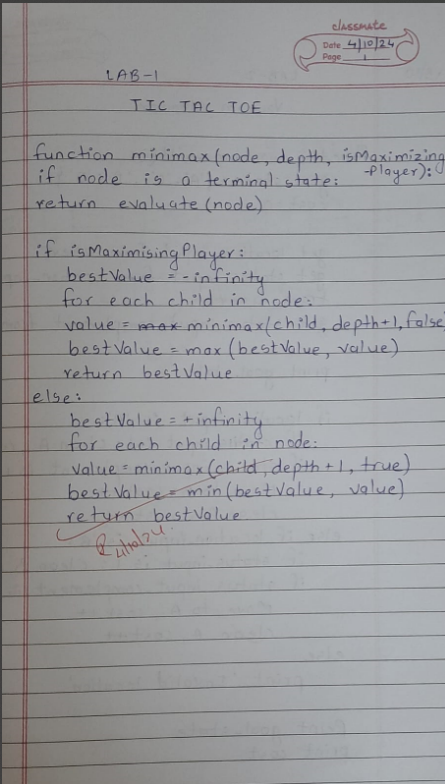 classmate
Date 4/10/24
Page 1
LAB-1
TIC TAC TOE
function minimax(node, depth, isMaximizing
-Player):
if node is a terminal state:
return evaluate(node)
if isMaximisingPlayer:
bestValue = -infinity
for each child in node:
value = max minimax(child, depth+1, false
bestValue = max(bestValue, value)
return bestValue
else:
bestValue = +infinity
for each child in node:
value = minimax(child, depth+1, true)
bestValue = min(bestValue, value)
return bestValue
4/10/24